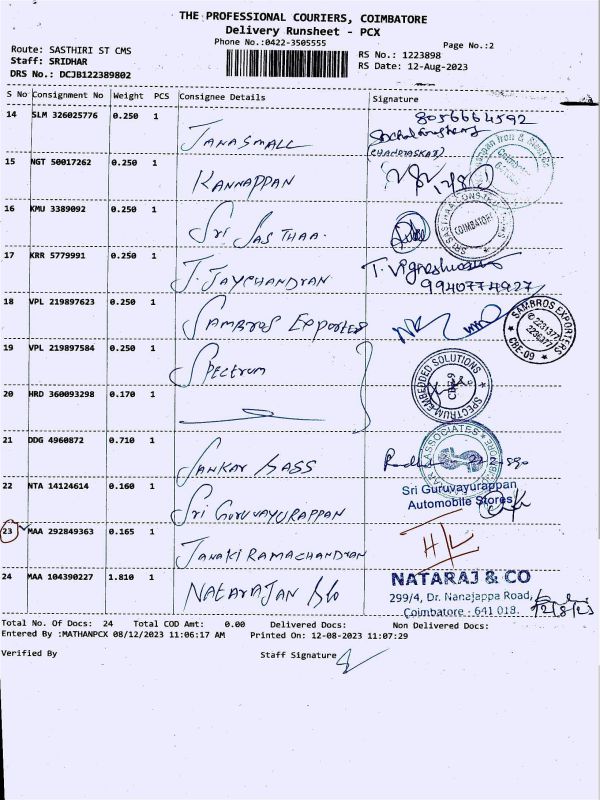 THE PROFESSIONAL COURIERS, COIMBATORE
Delivery Runsheet - PCX
Phone No.:0422-3505555
Page No.:2
Route: SASTHIRI ST CMS
Staff: SRIDHAR
DRS No.: DCJB122389802
RS No.: 1223898
RS Date: 12-Aug-2023
S No Consignment No Weight PCS Consignee Details Signature
14 SLM 326025776 0.250 1 JANASMALL 8056664592
(CHANDRASKAR)
15 NGT 50017262 0.250 1 KANNAPPAN
16 KMU 3389092 0.250 1 Sri SASTHAA.
SRI SASTHAA CONS
COIMBATORE
17 KRR 5779991 0.250 1 J. JAYCHANDRAN T. Vigneshwaran
9940774927
18 VPL 219897623 0.250 1 SAMBROS Exporter
SAMBROS EXPORTERS
2231377
2236377
CBE-09
19 VPL 219897584 0.250 1 Spectrum
SPECTRUM EMBEDDED SOLUTIONS
CBE-9
20 HRD 360093298 0.170 1
21 DDG 4960872 0.710 1 SANKAR SASS
ASSOCIATES
22 NTA 14124614 0.160 1 Sri GURUVAYURAPPAN
Sri Guruvayurappan
Automobile Stores
23 MAA 292849363 0.165 1 JANAKI RAMACHANDRAN H/L
24 MAA 104390227 1.810 1 NATARAJAN
NATARAJ & CO
299/4, Dr. Nanajappa Road,
Coimbatore - 641 018.
12/8/23
Total No. Of Docs: 24 Total COD Amt: 0.00 Delivered Docs: Non Delivered Docs:
Entered By :MATHANPCX 08/12/2023 11:06:17 AM Printed On: 12-08-2023 11:07:29
Verified By Staff Signature